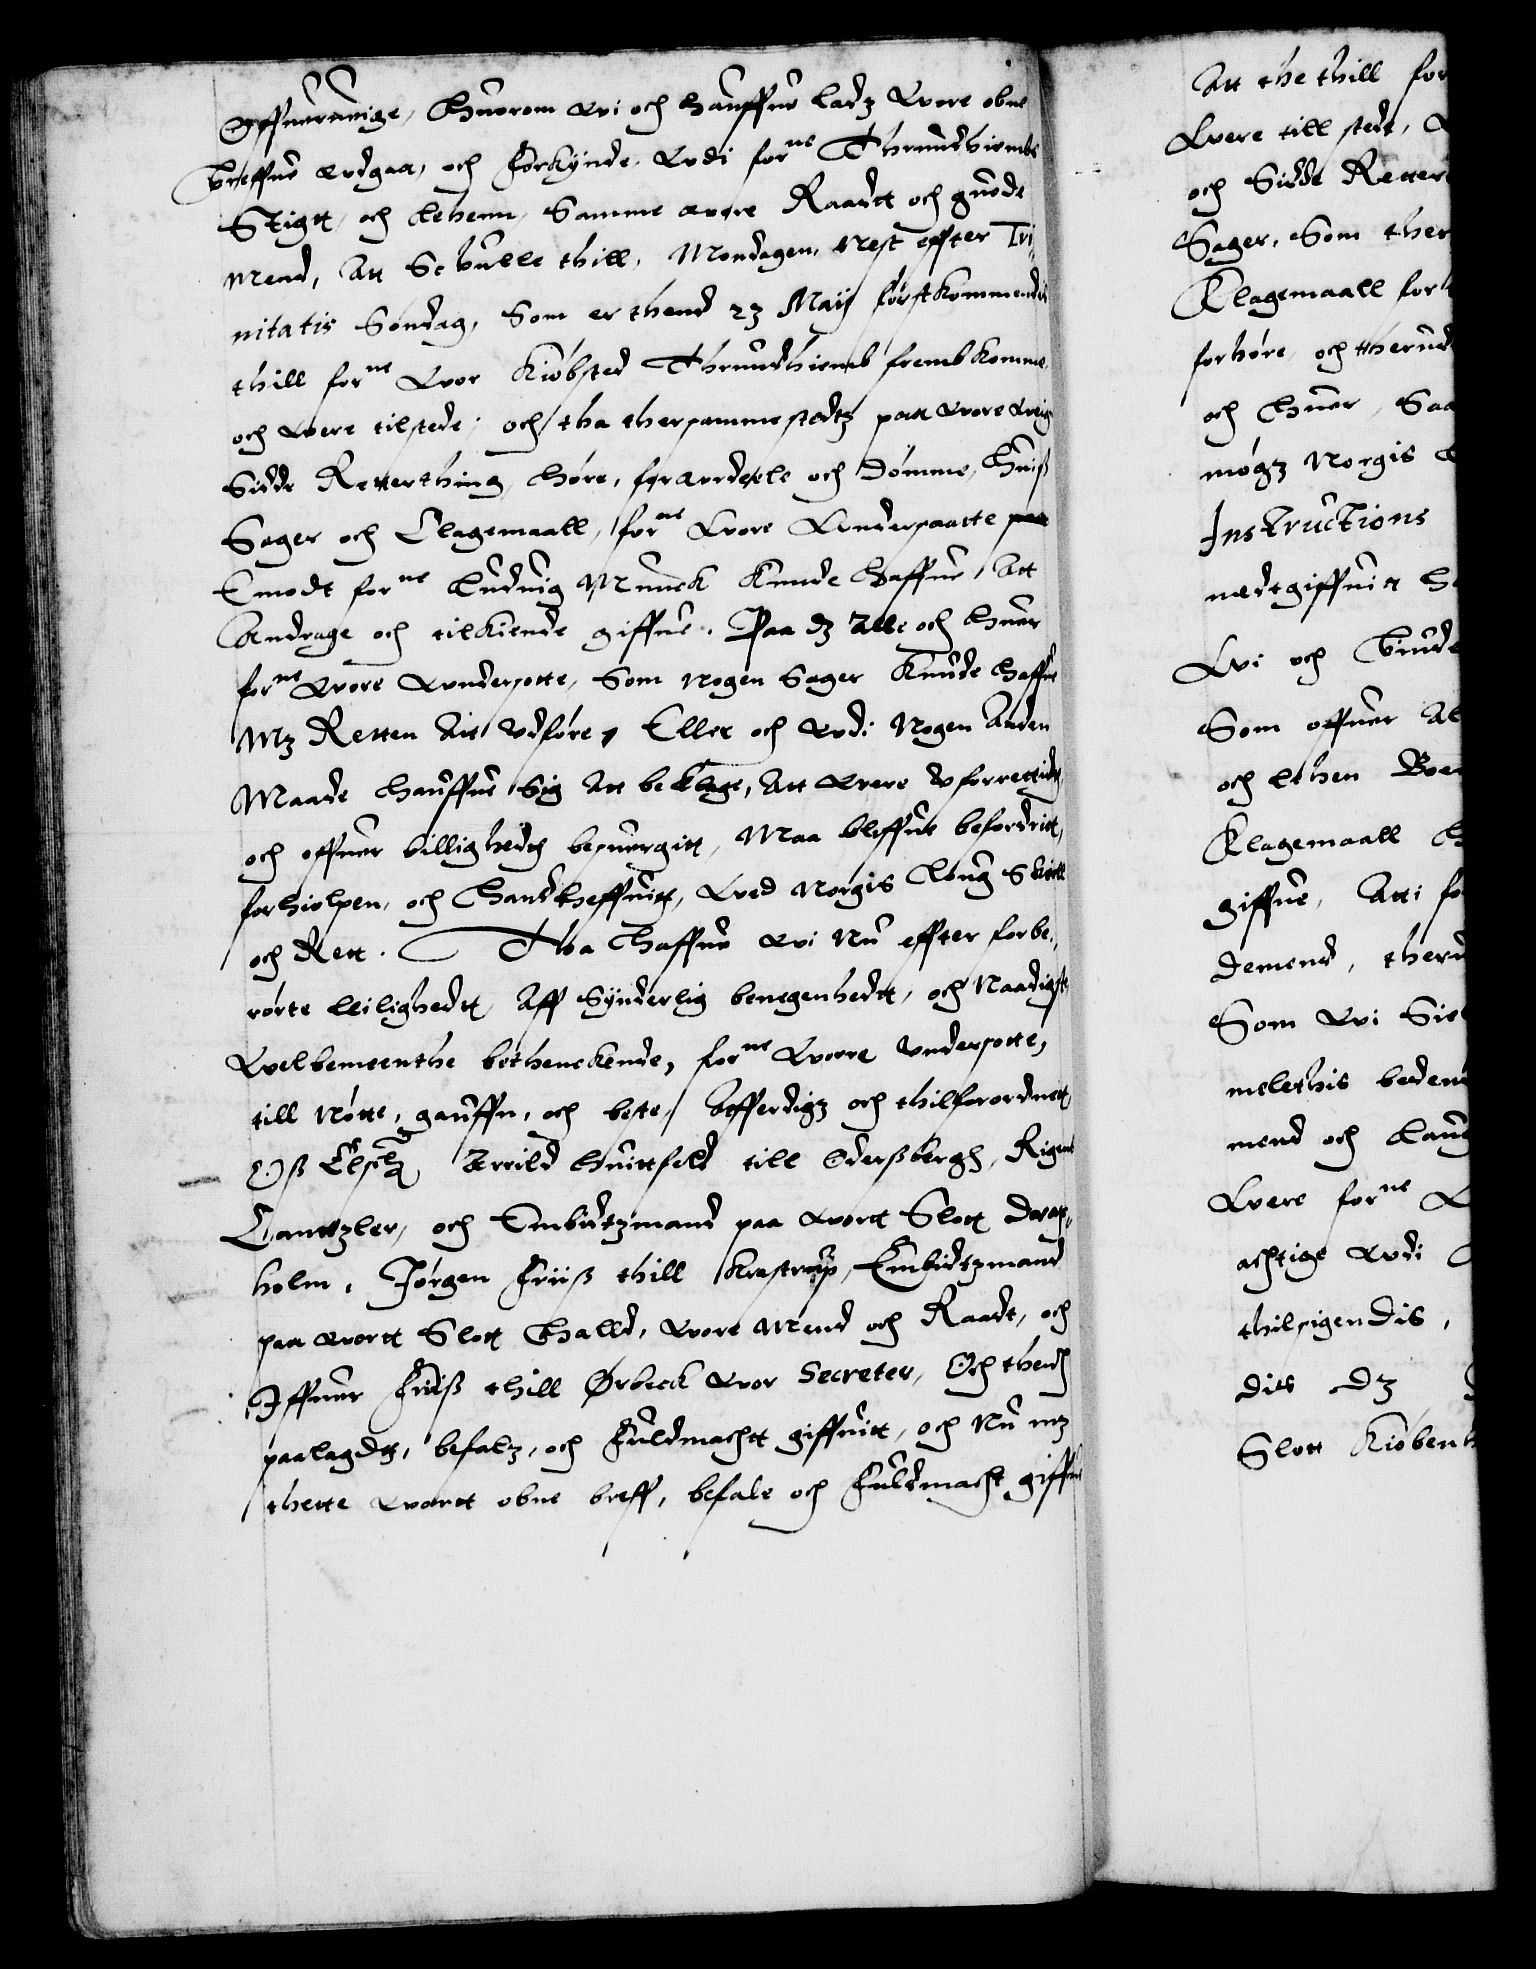 Offueruerige, Huorom wi och hauffue ladz wore obne
Breffue wdgaa, och forkynde wdi forne Thrundhiembs
Stigtt och Lehenn, Samme wore Raadtt och guode
Mend, Att Schulle thill, Mondagen, Nest effter Tri-
nitatis Søndag, Som er thend 23 Maij førstkommendis
thill forne wor Kiøbsted Thrundhiemb frembkomme
och were tilstede, och tha thersammestedtz paa wore weigne
Sidde Retterthing, høre, forarrdeele och dømme, huiß
Sager och Clagemaall, forne wore wndersaatte
Emodt forne Ludwig Munck kunde haffue Att
Andrage och tilkiende giffue. Paa dz Alle och huer
forne wore wndersotte, Som Nogen Sager kunde haffue
Mz Retten Att wdføre, Eller och wdi Nogen Anden
Maade hauffue Sig Att beklage, Att were wforrettidt,
och offuer billighedtz besuergitt, Maa bliffue befordritt,
forhiolpen, och handtheffuitt, wed Norgis Loug Skiell
och Rett. Tha haffue wi Nu effter forbe-
rørte Leilighedtt, Aff Synderlig benegenhedtt, och Naadigste
welbemeenthe bethenckende, forne worre wndersotte,
till Nøtte, gauffn, och beste, Afferdigz och thilforordnett
Oß Elsklig Arrild huittfeld till Odersbergh, Rigens
Canttzler, och Embidtzmand paa wortt Slott Drax-
holm, Jørgen Friiß thill Krastrup, Embidtzmand
paa wortt Slott Halld, wore Mend och Raadt, och
Iffuer Friiß thill Ørbeck wor Secreter, Och thend
paalagdtt, befalz, och fuldmachtt giffuitt, och Nu mz
thette wortt obne breff, befale och fuldmacht giffue
Att the thill for
were till stedt,
och Sidde Retter
Sager, Som ther
Klagemaall for
forhøre, och therud
och huer, Saa
møgz Norgis
Instructions
uedtgiffuitt
wi och
Som offuer
och Lehen
Klagemaall
giffue, Atti
demend,
Som wi
melethis
mend och Laug
were forne
achtige wdi
thilsigendis,
dis dz
Slott Kiøbenh